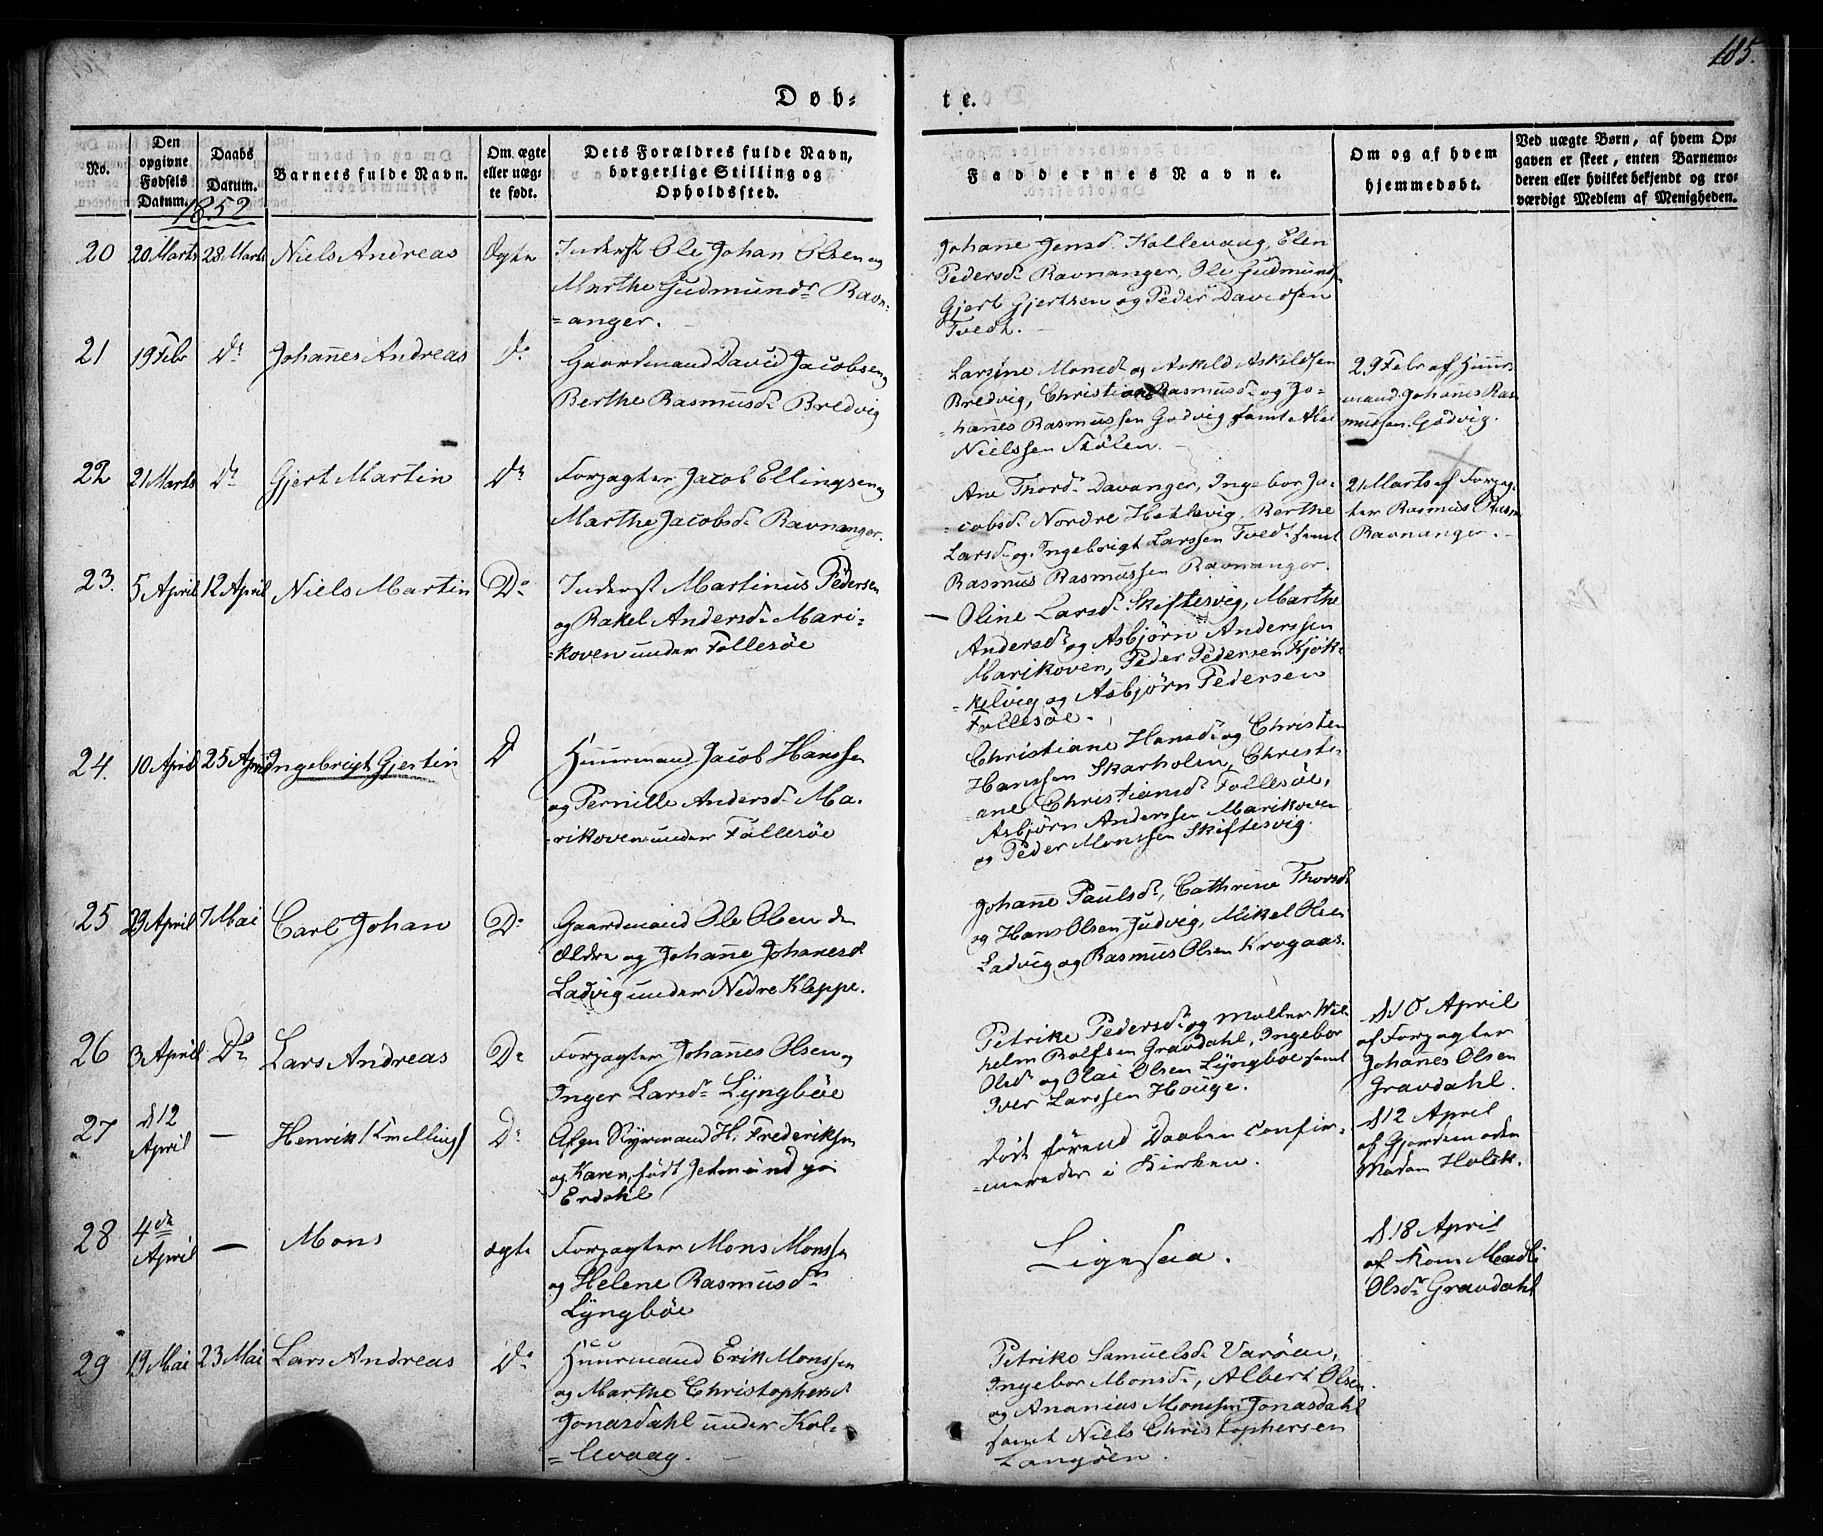 185.
Døb-
te.
No.
Den opgivne Fødsels Datum.
Daabs Datum.
Barnets fulde Navn.
Om ægte eller uægte født.
Dets Forældres fulde Navn, borgerlige Stilling og Opholdssted.
Faddernes Navne.
Om og af hvem hjemmedøbt.
Ved uægte Børn, af hvem Opgaven er skeet, enten Barnemoderen eller hvilket bekjendt og troværdigt Medlem af Menigheden.
1852
20 20 Marts 28 Marts Niels Andreas Ægte
Inderst Ole Johan Olsen og
Marthe Gudmundsdr Ravn-
=anger.
Johane Jensd. Kollevaag, Elen
Pedersd. Ravnanger, Ole Gudmunds.
Gjert Gjertsen og Peder Davidsen
Tvedt.
21 19 Febr Do Johannes Andreas Do
Gaardmand David Jacobsen og
Berthe Rasmusd. Bredvig
Larsine Monsd. og Askild Askildsen
Bredvig, Christiane Rasmusd. og Jo-
=hanes Rasmussen Godvig samt
Nielssen Stølen.
29 Febr af Huus-
mand Johanes Ras-
mussen Godvig.
22 21 Marts Do Gjert Martin Do
Forpagter Jacob Ellingsen og
Marthe Jacobsd. Ravnanger.
Ane Thord. Davanger, Ingebor Ja-
=cobsd. Nordre Hetlevig, Berthe
Larsd. og Ingebrigt Larssen Tvedt samt
Rasmus Rasmussen Ravnanger.
21 Marts af Forpag-
ter Rasmus Rasm.
Ravnanger.
23. 5 April 12 April Niels Martin Do
Inderst Martinus Pedersen
og Rakel Andersd. Mari-
=koven under Follesøe
Oline Larsd. Skiftesvig, Marthe
Andersd. og Asbjørn Anderssen
Marikoven, Peder Pedersen Kjøk-
=kelvig og Asbjørn Pedersen
Follesøe.
24. 10 April 25 April Ingebrigt Gjertin D
Huusmand Jacob Hanssen
og Pernille Andersd. Ma-
=rikoven under Follesøe
Christiane Hansd. og Christen
Hanssen Skarholen, Christi-
ane Christiansd. Follesøe,
Asbjørn Anderssen Marikoven
og Peder Monssen Skiftesvig.
25 29 April 7 Mai Carl Johan Do
Gaardmand Ole Olsen den
Ældre og Johanne Johanesd.
Ladvig under Nedre Kleppe.
Johane Paulsd., Cathrine Thorsd.
og Hans Olsen Judvig, Mikel Olsen
Ladvig og Rasmus Olsen Krogaas.
26 3 April Do Lars Andreas Do
Forpagter Johannes Olsen og
Inger Larsd. Lyngbøe
Petrike Pedersd. og Møller Wil-
helm Rolfsen Gravdahl, Ingebor
Olsd. og Olai Olsen Lyngbøe samt
Iver Larssen Houge.
d 10 April
af Forpagter
Johanes Olsen
Gravdahl.
27 d 12 April — Henrik (Knelling) Do
Afgn Styrmand H. Frederiksen
og Karen, født Jetmund paa
Erdahl
død førend Daaben confir-
=meredes i Kirken.
d 12 April
af Gjordemoder
Madam Holck.
28 4de April — Mons ægte
Forpagter Mons Monssen
og Helene Rasmusd.
Lyngbøe
Ligesaa.
d 18 April
af Kone Madli
Olsd. Gravdahl
29 19 Mai 23 Mai Lars Andreas Do
Huusmand Erik Monssen
og Marthe Christophersd.
Jonasdahl under Kol-
=levaag.
Petrike Samuelsd. Varøen,
Ingebor Monsd., Albert Olsen
og Ananias Monssen Jonasdahl
samt Niels Christophersen
Langøen.